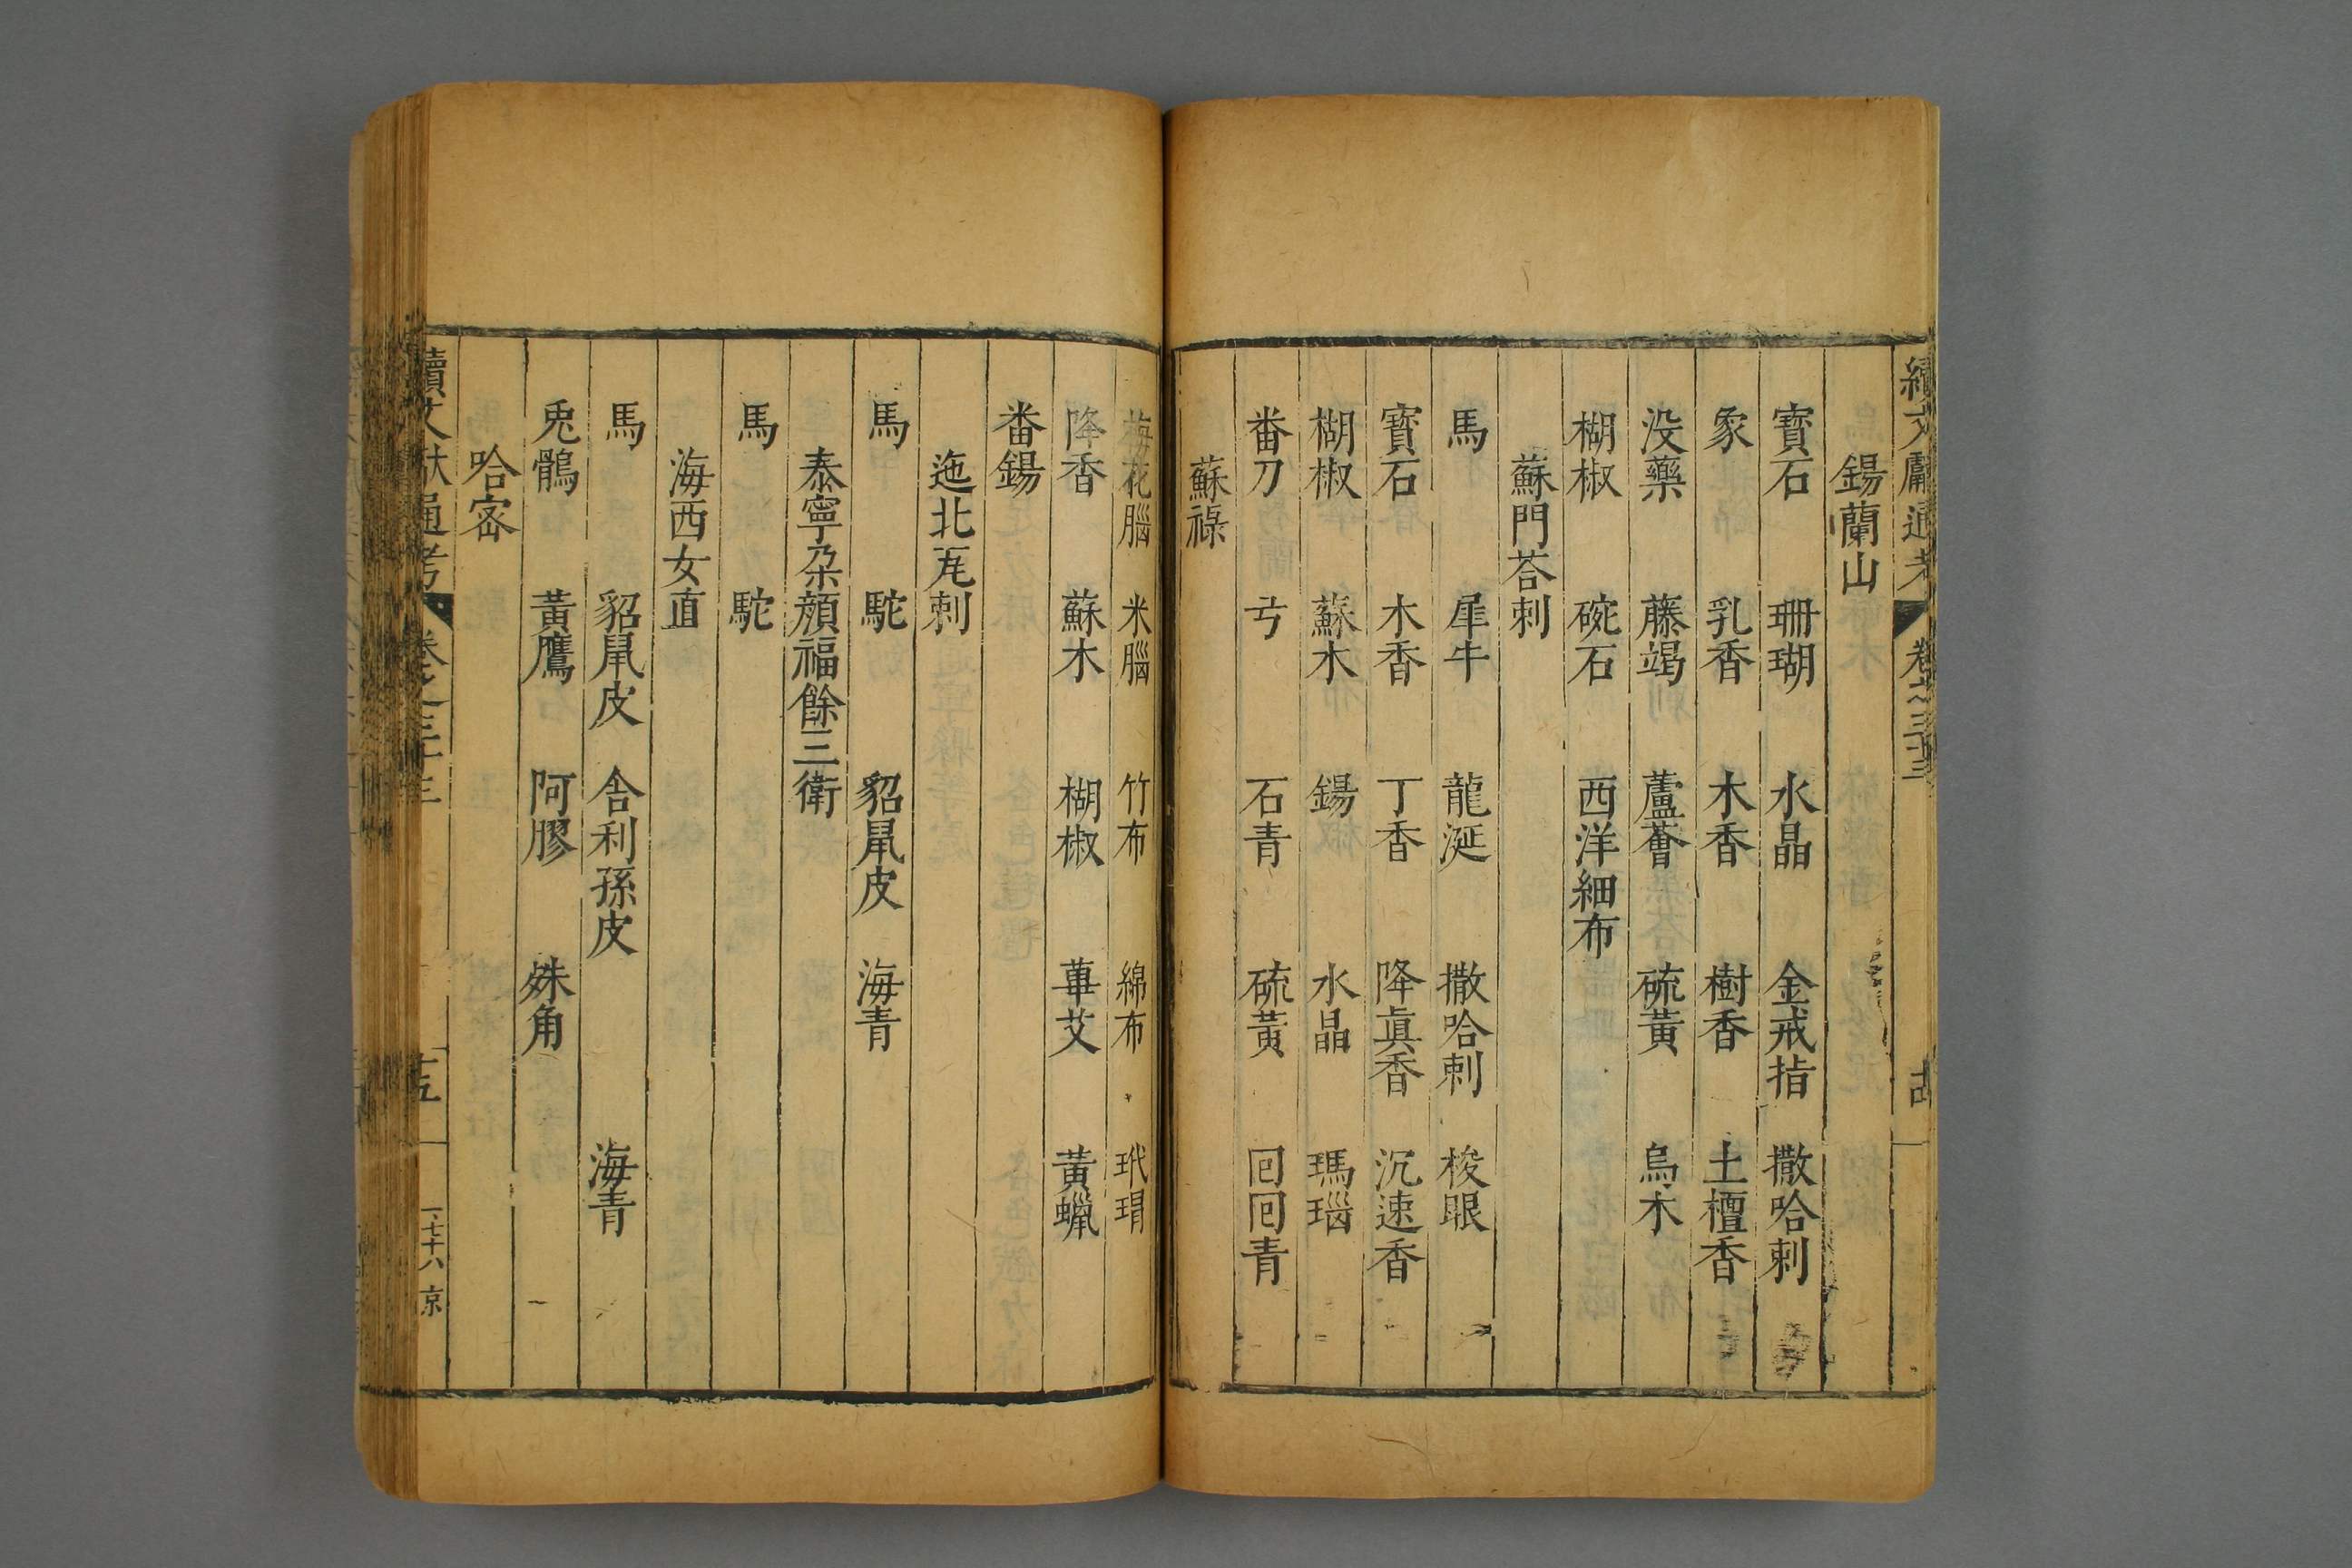 續文獻通考 卷之三十三
錫蘭山
寳石 珊瑚 水晶 金戒指 撒哈剌
象 乳香 木香 樹香 土檀香
没藥 藤竭 蘆薈 硫黃 烏木
楜椒 碗石 西洋細布
蘇門荅剌
馬 犀牛 龍涎 撒哈剌 梭眼
寳石 木香 丁香 降眞香 沉速香
楜椒 蘇木 錫 水晶 瑪瑙
畨刀 弓 石青 硫黃 回回青
蘇祿
梅花腦 米腦 竹布 綿布 玳瑁
降香 蘇木 楜椒 蓽茇 黃蠟
畨錫
迤北瓦剌
馬 駝 貂鼠皮 海青
泰寧朶顔福餘三衛
馬 駝
海西女直
馬 貂鼠皮 舍利孫皮 海青
兎鶻 黃鷹 阿膠 殊角
哈宻
續文獻通考 卷之三十三 十五 一七十六 京